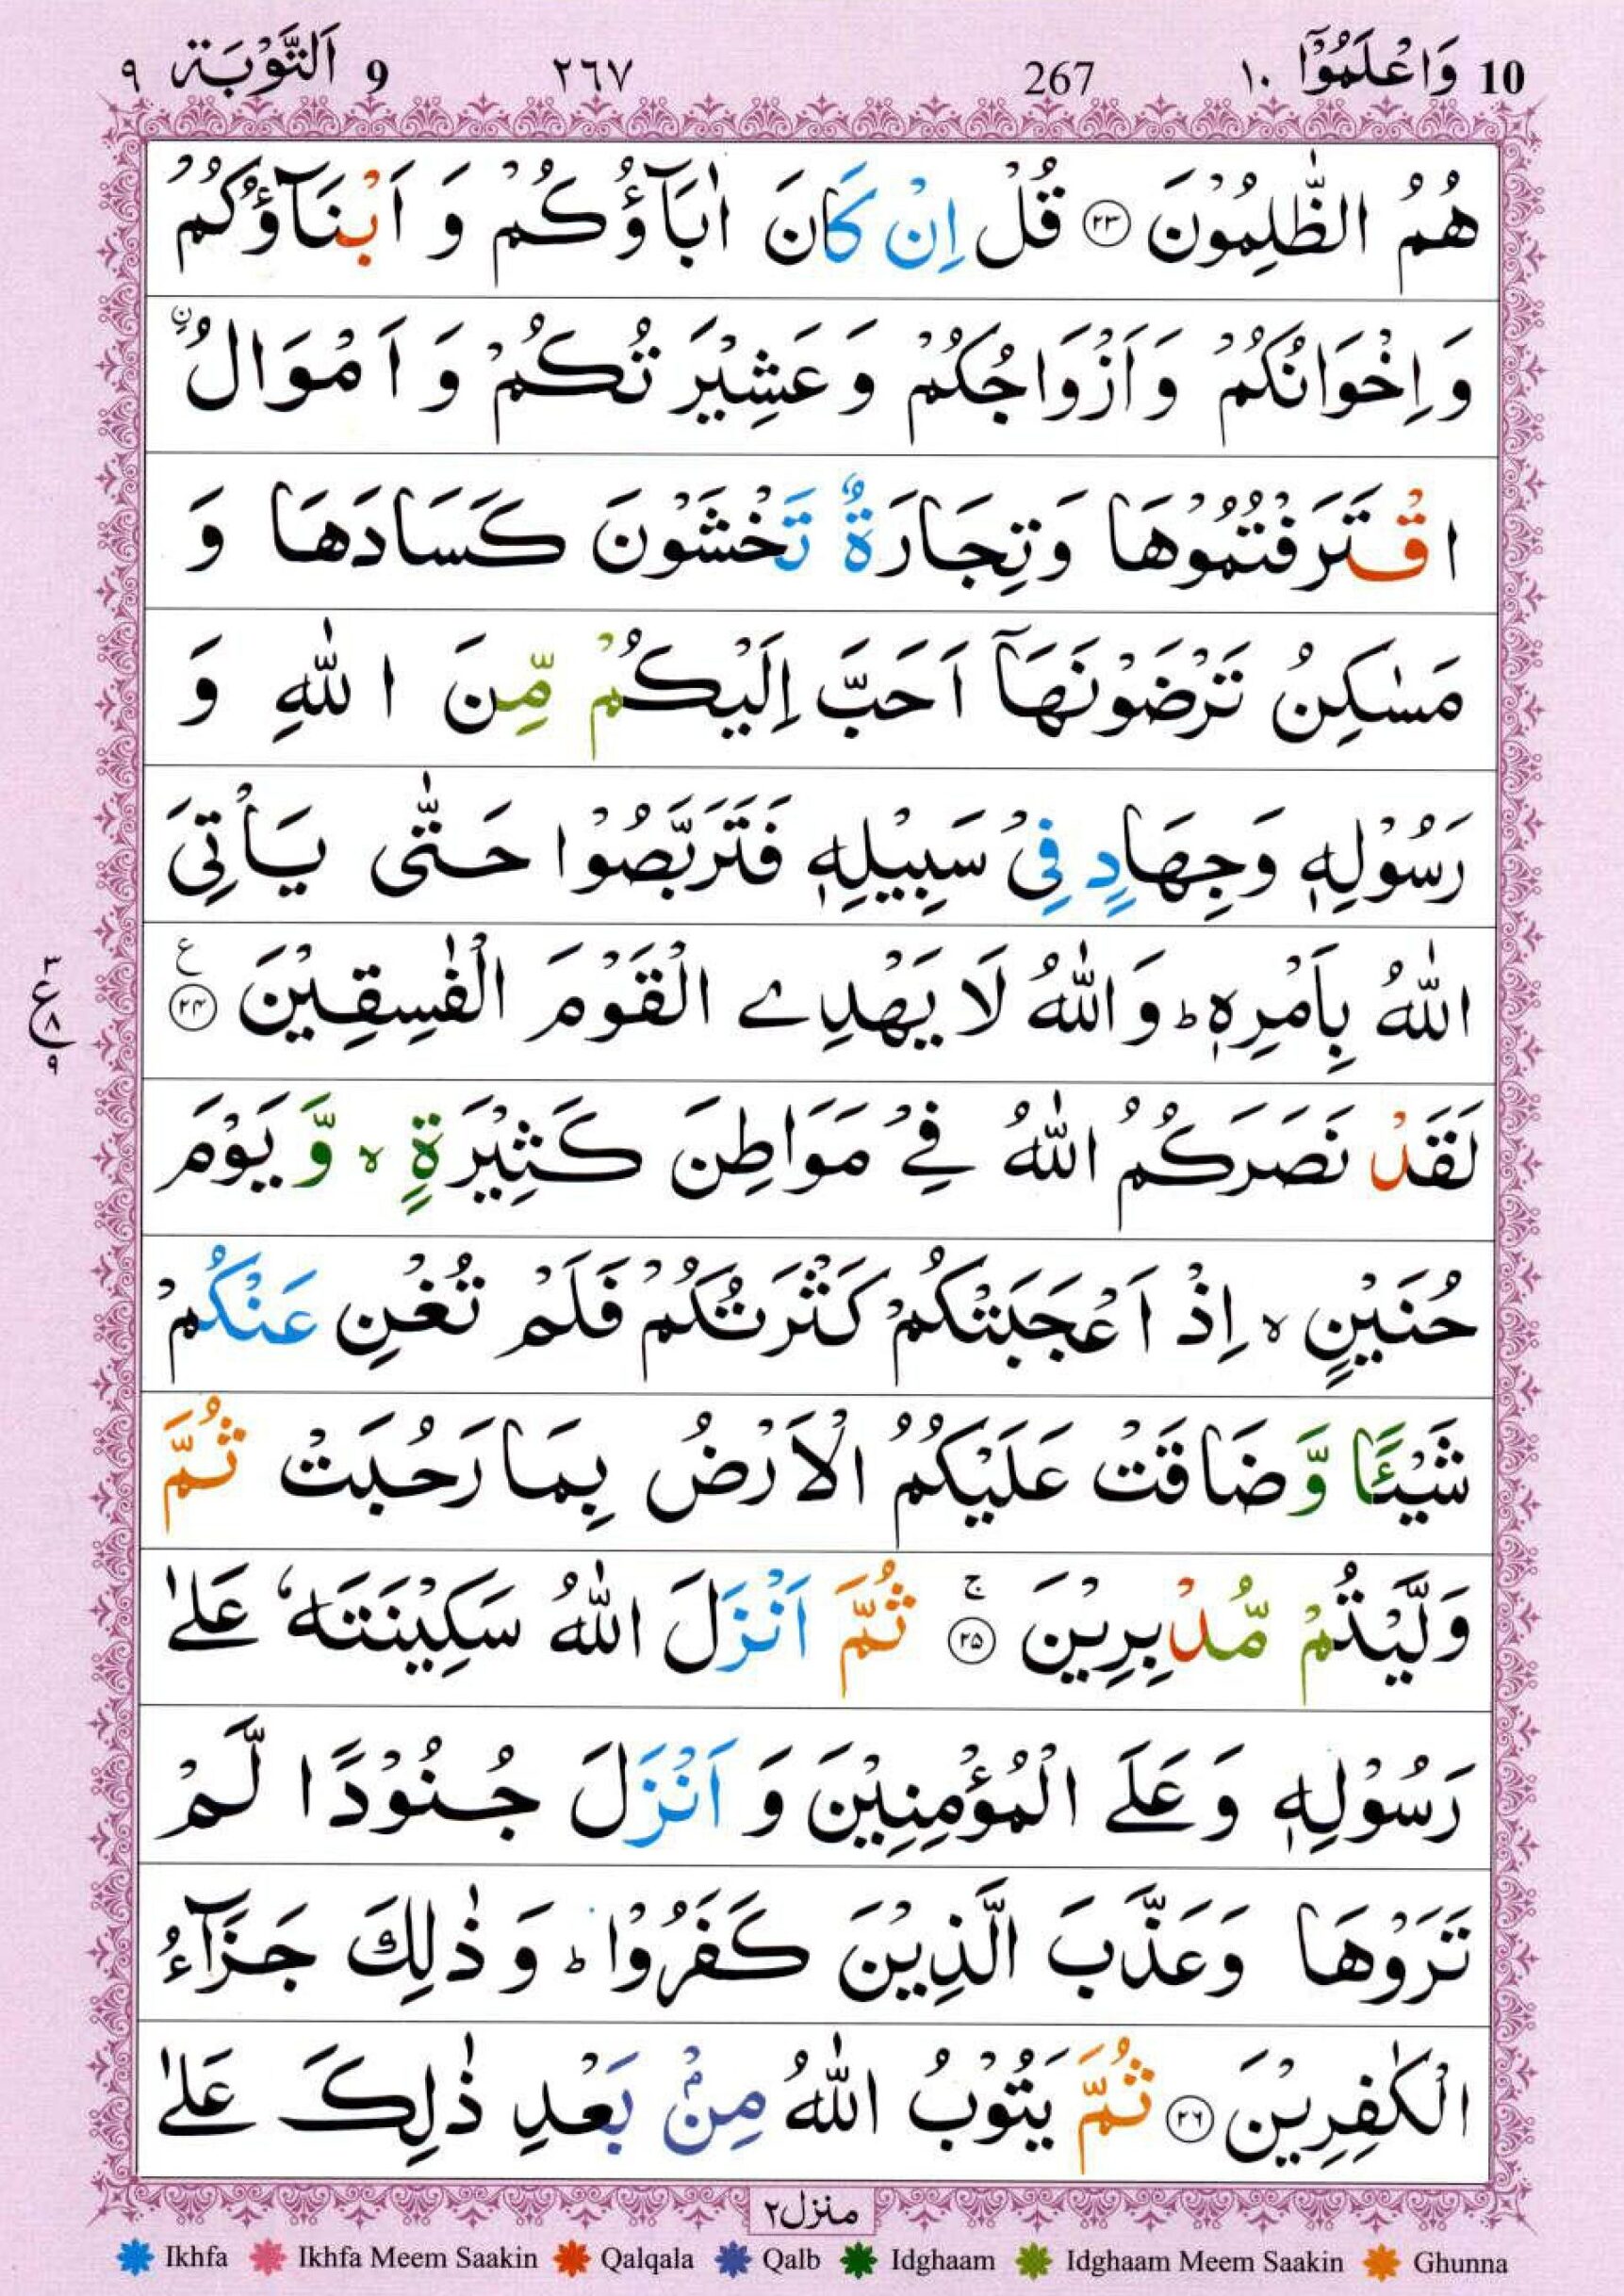 10 وَاعْلَمُوْۤا ١٠ 267 ٢٦٧ 9 اَلتَّوْبَة ٩
هُمُ الظّٰلِمُوْنَ ﴿۲۳﴾ قُلْ اِنْ كَانَ اٰبَآؤُكُمْ وَ اَبْنَآؤُكُمْ
وَاِخْوَانُكُمْ وَاَزْوَاجُكُمْ وَعَشِيْرَتُكُمْ وَ اَمْوَالُ ۨ
اقْتَرَفْتُمُوْهَا وَتِجَارَةٌ تَخْشَوْنَ كَسَادَهَا وَ
مَسٰكِنُ تَرْضَوْنَهَاۤ اَحَبَّ اِلَيْكُمْ مِّنَ اللّٰهِ وَ
رَسُوْلِهٖ وَجِهَادٍ فِيْ سَبِيْلِهٖ فَتَرَبَّصُوْا حَتّٰى يَاْتِيَ
اللّٰهُ بِاَمْرِهٖ ؕ وَاللّٰهُ لَا يَهْدِے الْقَوْمَ الْفٰسِقِيْنَ ﴿۲۴﴾ ع
٣ ع ٨ ٩
لَقَدْ نَصَرَكُمُ اللّٰهُ فِيْ مَوَاطِنَ كَثِيْرَةٍ ۙ وَّيَوْمَ
حُنَيْنٍ ۙ اِذْ اَعْجَبَتْكُمْ كَثْرَتُكُمْ فَلَمْ تُغْنِ عَنْكُمْ
شَيْـًٔا وَّضَاقَتْ عَلَيْكُمُ الْاَرْضُ بِمَا رَحُبَتْ ثُمَّ
وَلَّيْتُمْ مُّدْبِرِيْنَ ﴿۲۵﴾ ۚ ثُمَّ اَنْزَلَ اللّٰهُ سَكِيْنَتَهٗ عَلٰى
رَسُوْلِهٖ وَعَلَى الْمُؤْمِنِيْنَ وَ اَنْزَلَ جُنُوْدًا لَّمْ
تَرَوْهَا وَعَذَّبَ الَّذِيْنَ كَفَرُوْا ؕ وَذٰلِكَ جَزَآءُ
الْكٰفِرِيْنَ ﴿۲۶﴾ ثُمَّ يَتُوْبُ اللّٰهُ مِنْۢ بَعْدِ ذٰلِكَ عَلٰى
منزل٢
Ikhfa Ikhfa Meem Saakin Qalqala Qalb Idghaam Idghaam Meem Saakin Ghunna